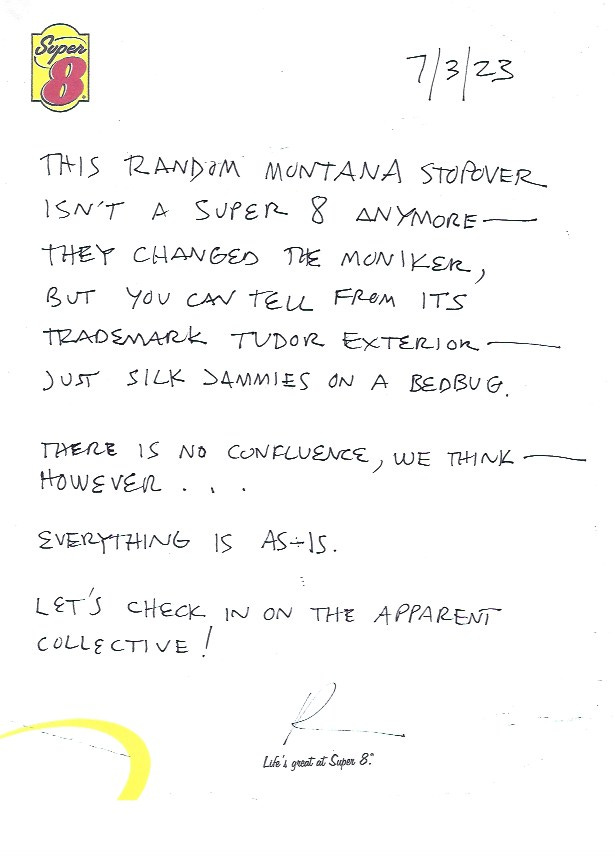 Super
8
7/3/23
THIS RANDOM MONTANA STOPOVER
ISN'T A SUPER 8 ANYMORE—
THEY CHANGED THE MONIKER,
BUT YOU CAN TELL FROM ITS
TRADEMARK TUDOR EXTERIOR—
JUST SILK JAMMIES ON A BEDBUG.
THERE IS NO CONFLUENCE, WE THINK—
HOWEVER . . .
EVERYTHING IS AS-IS.
LET'S CHECK IN ON THE APPARENT
COLLECTIVE!
R
Life's great at Super 8.®